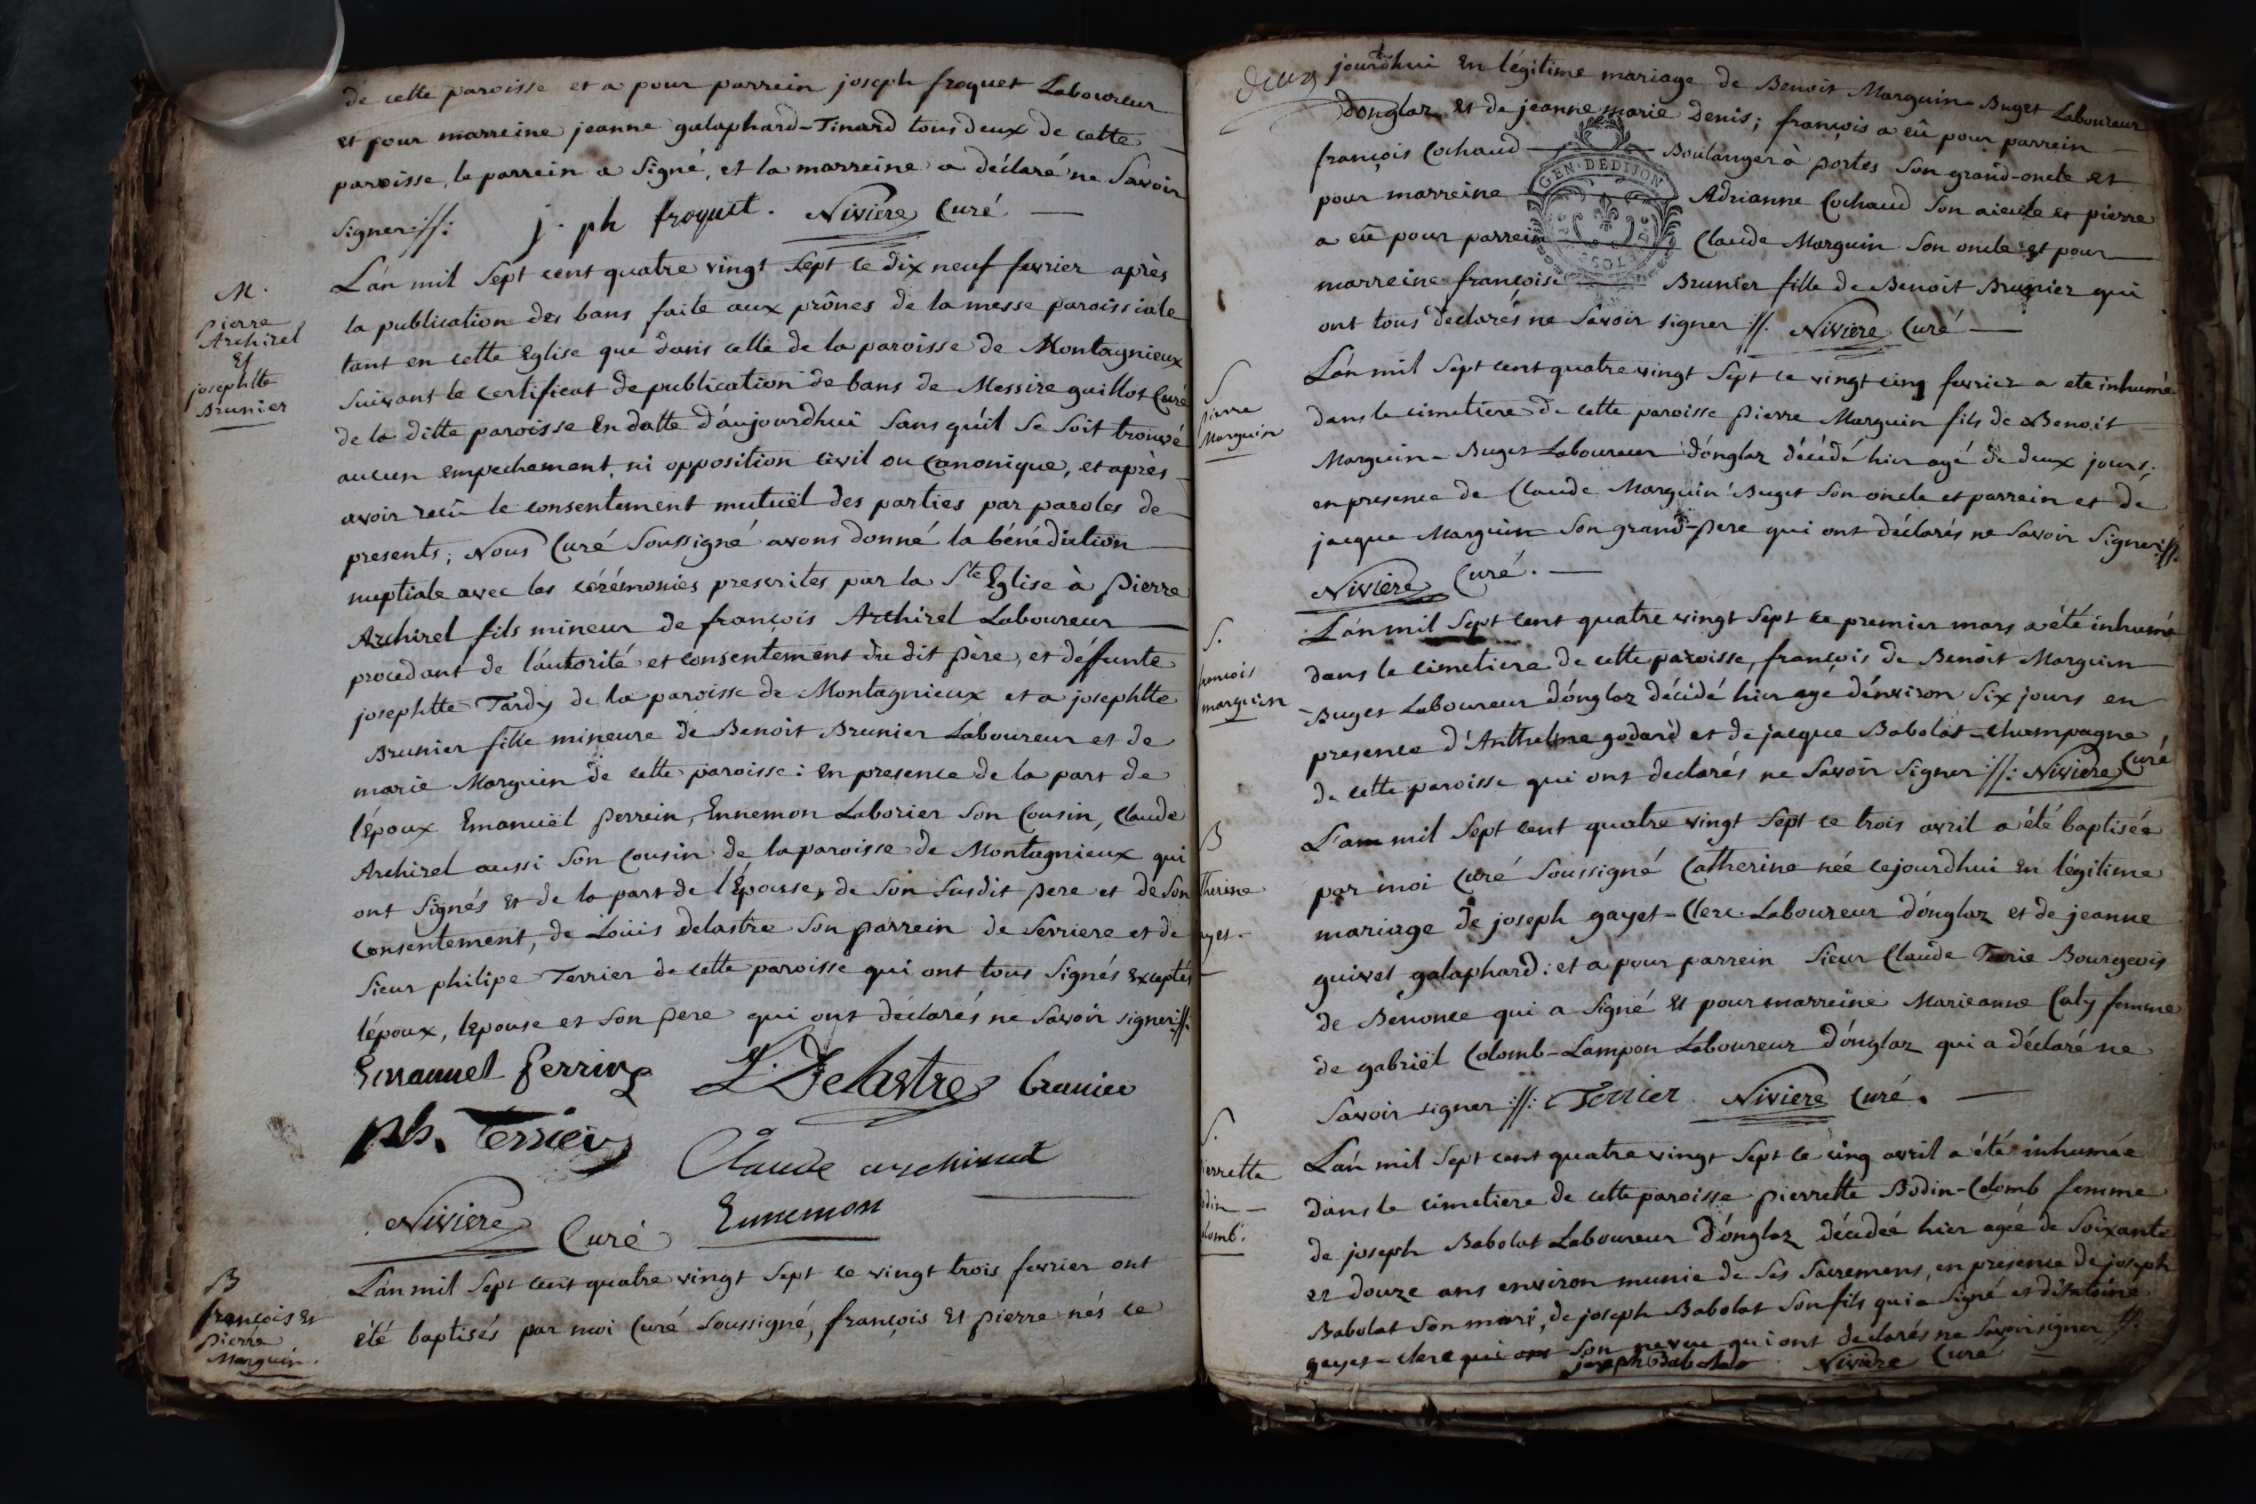 de cette paroisse et a pour parrein joseph froquet Laboureur
et pour marreine jeanne galaphard-Tinard tous deux de cette
paroisse, le parrein a signé, et la marreine a déclaré ne savoir
signer://: j. ph froquet. Niviere Curé
M.
pierre
Archirel
Et
josephtte
Brunier
L'an mil sept cent quatre vingt sept ce dix neuf fevrier après
la publication des bans faite aux prônes de la messe paroissiale
tant en cette Eglise que dans celle de la paroisse de Montagnieux
suivant le certificat de publication de bans de Messire guillot Curé
de la ditte paroisse En datte d'aujourdhui sans qu'il se soit trouvé
aucun empechement, ni opposition civil ou Canonique, et après
avoir reçû le consentement mutuël des parties par paroles de
presents; Nous Curé soussigné avons donné la bénédiction
nuptiale avec les cérémonies prescrites par la Ste Eglise à pierre
Archirel fils mineur de françois Archirel Laboureur
procedant de l'autorité et consentement du dit père, et déffunte
josephtte Tardy de la paroisse de Montagnieux et a josephtte
Brunier fille mineure de Benoit Brunier Laboureur et de
marie Marguin de cette paroisse: En presence de la part de
l'époux Emanuël perrein, Ennemon Laborier son Cousin, Claude
Archirel aussi son Cousin de la paroisse de Montagnieux qui
ont signés et de la part de l'Epouse, de son susdit pere et de son
consentement, de Loüis Delastre son parrein de Serriere et de
sieur philipe Terrier de cette paroisse qui ont tous signés exceptés
l'époux, l'epouse et son pere qui ont déclarés ne savoir signer://:
Emanuel perrin L. Delastre
ph. Terrier Claude archirel
Niviere Curé Ennemon
B
françois Et
pierre
Marguin.
L'an mil sept cent quatre vingt sept ce vingt trois fevrier ont
été baptisés par moi Curé soussigné, françois Et pierre nés ce
jourdhui En légitime mariage de Benoit Marguin Buget Laboureur
d'onglaz et de jeanne marie Denis; françois a eû pour parrein
françois Cochaud Boulanger à portes son grand-oncle et
pour marreine Adrianne Cochaud son aieule et pierre
a eû pour parrein Claude Marguin son oncle et pour
marreine françoise Brunier fille de Benoit Brunier qui
ont tous declarés ne savoir signer //. Niviere Curé
GEN. DE DIJON
S
pierre
Marguin
L'an mil sept cent quatre vingt sept ce vingt cinq fevrier a ete inhumé
dans le cimetiere de cette paroisse pierre Marguin fils de Benoit
Marguin-Buget Laboureur d'onglaz décédé hier agé de deux jours;
en presence de Claude Marguin Buget son oncle et parrein et de
jacque Marguin son grand-pere qui ont déclarés ne savoir signer://.
Niviere Curé.
S.
francois
marguin
L'an mil sept cent quatre vingt sept ce premier mars a été inhumé
dans le cimetiere de cette paroisse, françois de Benoit Marguin
-Buget Laboureur d'onglaz décidé hier agé d'environ six jours en
presence d'Anthelme godard et de jacque Babolat-Champagne,
de cette paroisse qui ont declarés ne savoir signer://: Niviere Curé
B
therine
ayet.
L'an mil sept cent quatre vingt sept ce trois avril a été baptisée
par moi Curé soussigné Catherine née cejourdhui En légitime
mariage de joseph gayet-Clerc Laboureur d'onglaz et de jeanne
guivet galaphard: et a pour parrein sieur Claude Bourgeois
de Benonce qui a signé et pour marreine Marieanne Caly femme
de gabriël Colomb-Lampon Laboureur d'onglaz qui a déclaré ne
savoir signer://: Terrier Niviere Curé.
S.
ierrette
odin
olomb.
L'an mil sept cent quatre vingt sept ce cinq avril a été inhumée
dans le cimetiere de cette paroisse pierrette Bodin-Colomb femme
de joseph Babolat Laboureur d'onglaz décédeé hier agéé de soixante
et douze ans environ munie de ses sacremens, en présence de joseph
Babolat son mari, de joseph Babolat son fils qui a signé et d'
gayet-clerc qui son neveu qui ont declarés ne savoir signer //.
joseph Babolat Niviere Curé